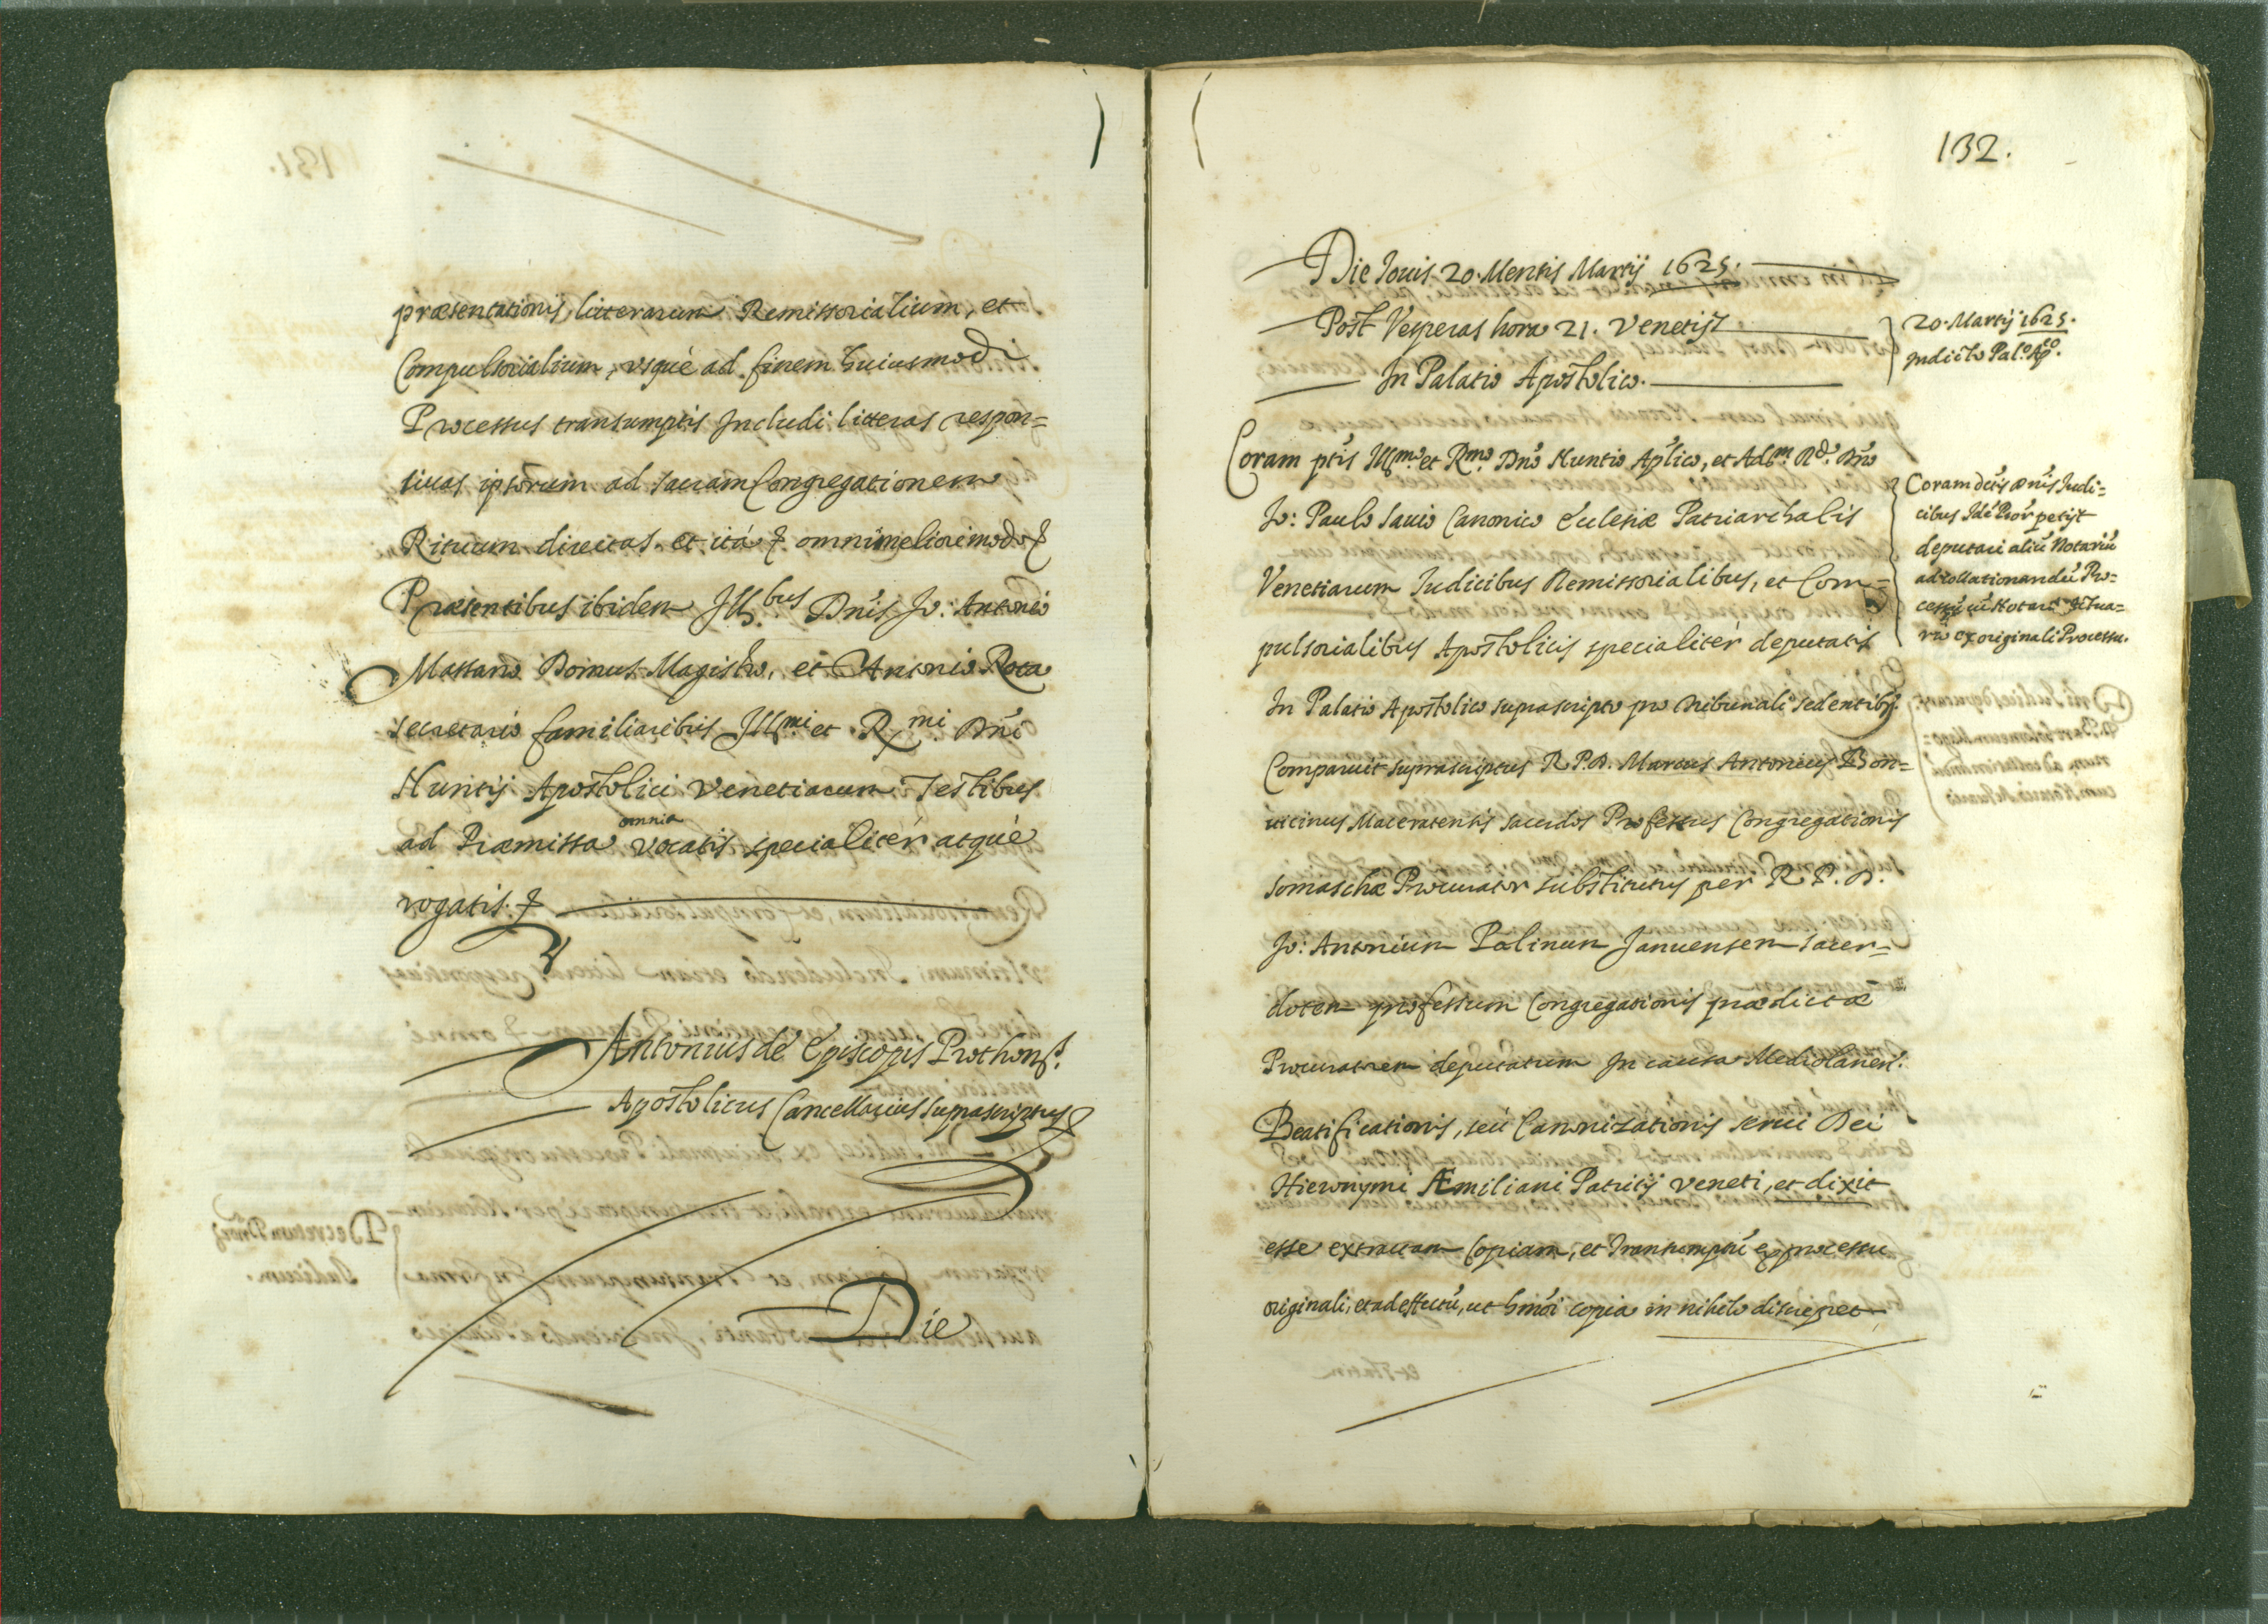 præsentationis, litterarum Remissorialium, et
Compulsorialium, vsquè ad finem huiusmodi
Processus transumptis Includi litteras respon=
siuas ipsorum ad sacram Congregationem
Rituum directas. et ita & omni meliori modo &
Præsentibus ibidem Ill.bus Dnis Jo: Antonio
Massario Domus Magistro, et Antonio Rota
secretario familiaribus Illmi et Rmi Dni
Nuntij Apostolici Venetiarum Testibus
ad Præmissa omnia vocatis specialiter atquè
rogatis. &
Antonius de Episcopis Prothons.
Apostolicus Cancellarius suprascriptus &
Die
132.
Die Iouis 20. Mensis Martij 1625.
Post Vesperas hora 21. Venetijs
In Palatio Apostolico.
20. Martij 1625.
Indicto Pal.o Ap.co
Coram ptis Illmo et Rmo Dno Nuntio Aplico, et Adm Rdo Dno
Jo: Paulo Sauio Canonico Ecclesiæ Patriarchalis
Venetiarum Iudicibus Remissorialibus, et Com=
pulsorialibus Apostolicis specialiter deputatis
In Palatio Apostolico suprascripto pro tribunali sedentibus.
Comparuit suprascriptus R. P. D. Marcus Antonius Bon=
uicinus Maceratensis sacerdos Professus Congregationis
Somaschæ Procurator substitutus per R. P. D.
Jo: Antonium Palinum Januensem sacer=
dotem professum Congregationis prædictæ
Procuratorem deputatum In causa Mediolanen.
Beatificationis, seù Canonizationis serui Dei
Hieronymi Æmiliani Patritij Veneti, et dixit
esse extractam Copiam, et Transumptū ex processu
originali, et ad effectū, ut hmōi copia in nihilo discrepet
Coram dctis Dnis Iudi=
cibus Idē Procr petijt
deputari aliū Notariū
ad collationandū Pro=
cessū cū Notario Actua=
rio ex originali Processu.